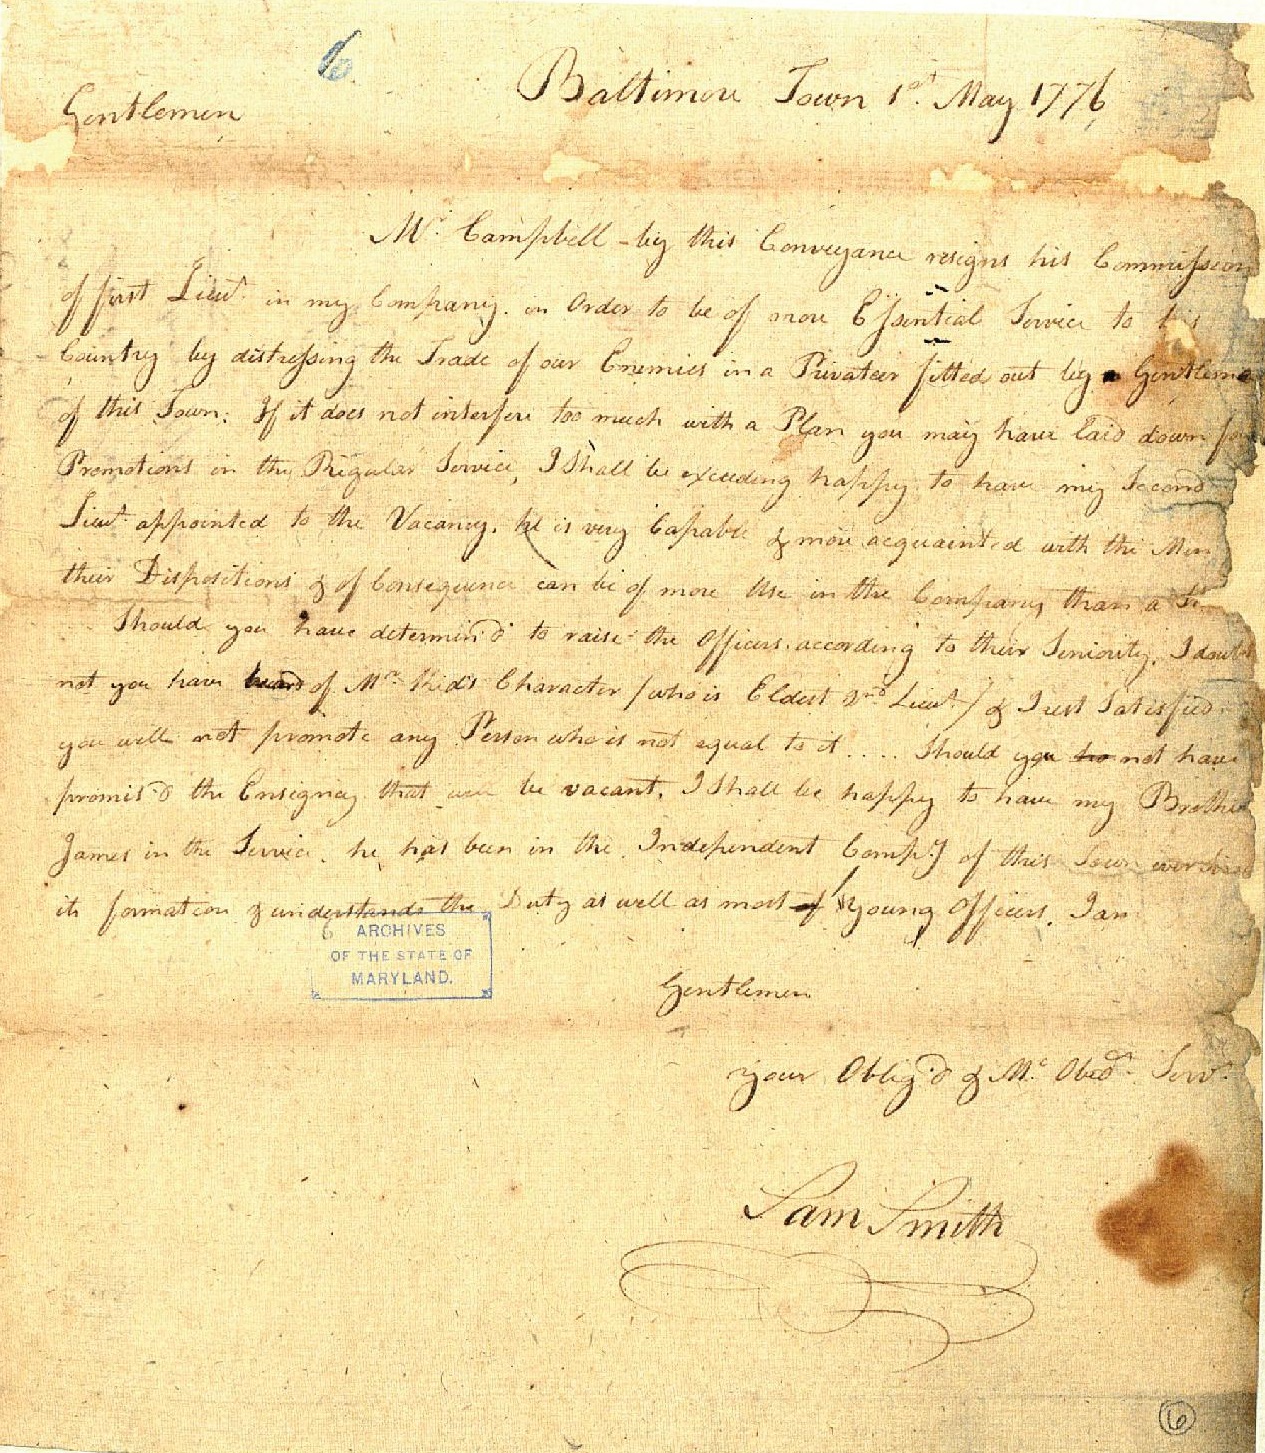 6
Baltimore Town 1st. May 1776
Gentlemen
Mr. Campbell by this Conveyance resigns his Commission
of first Lieut. in my Company. in Order to be of more Essential Service to his
Country by distressing the Trade of our Enemies in a Privateer fitted out by a Gentleme
of this Town. If it does not interfere too much with a Plan you may have laid down for
Promotions in the Regular Service, I Shall be exceeding happy to have my Second
Lieut. appointed to the Vacancy. he is very Capable & more acquainted with the Men
their Dispositions & of Consequence can be of more Use in the Company than a
Should you have determin'd to raise the Officers according to their Seniority, I doubt
not you have heard of Mr. Kid's Character (who is Eldest 2nd Lieut.) & I rest Satisfied
you will not promote any Person who is not equal to it .... Should you not have
promis'd the Ensigncy that will be vacant, I Shall be happy to have my Brother
James in the Service. he has been in the Independent Compy of this Town ever Since
its formation & understands the Duty as well as most Young Officers. I am
Gentlemen
Your Oblig'd & Mo. Obed. Servt.
Sam Smith
ARCHIVES
OF THE STATE OF
MARYLAND.
6